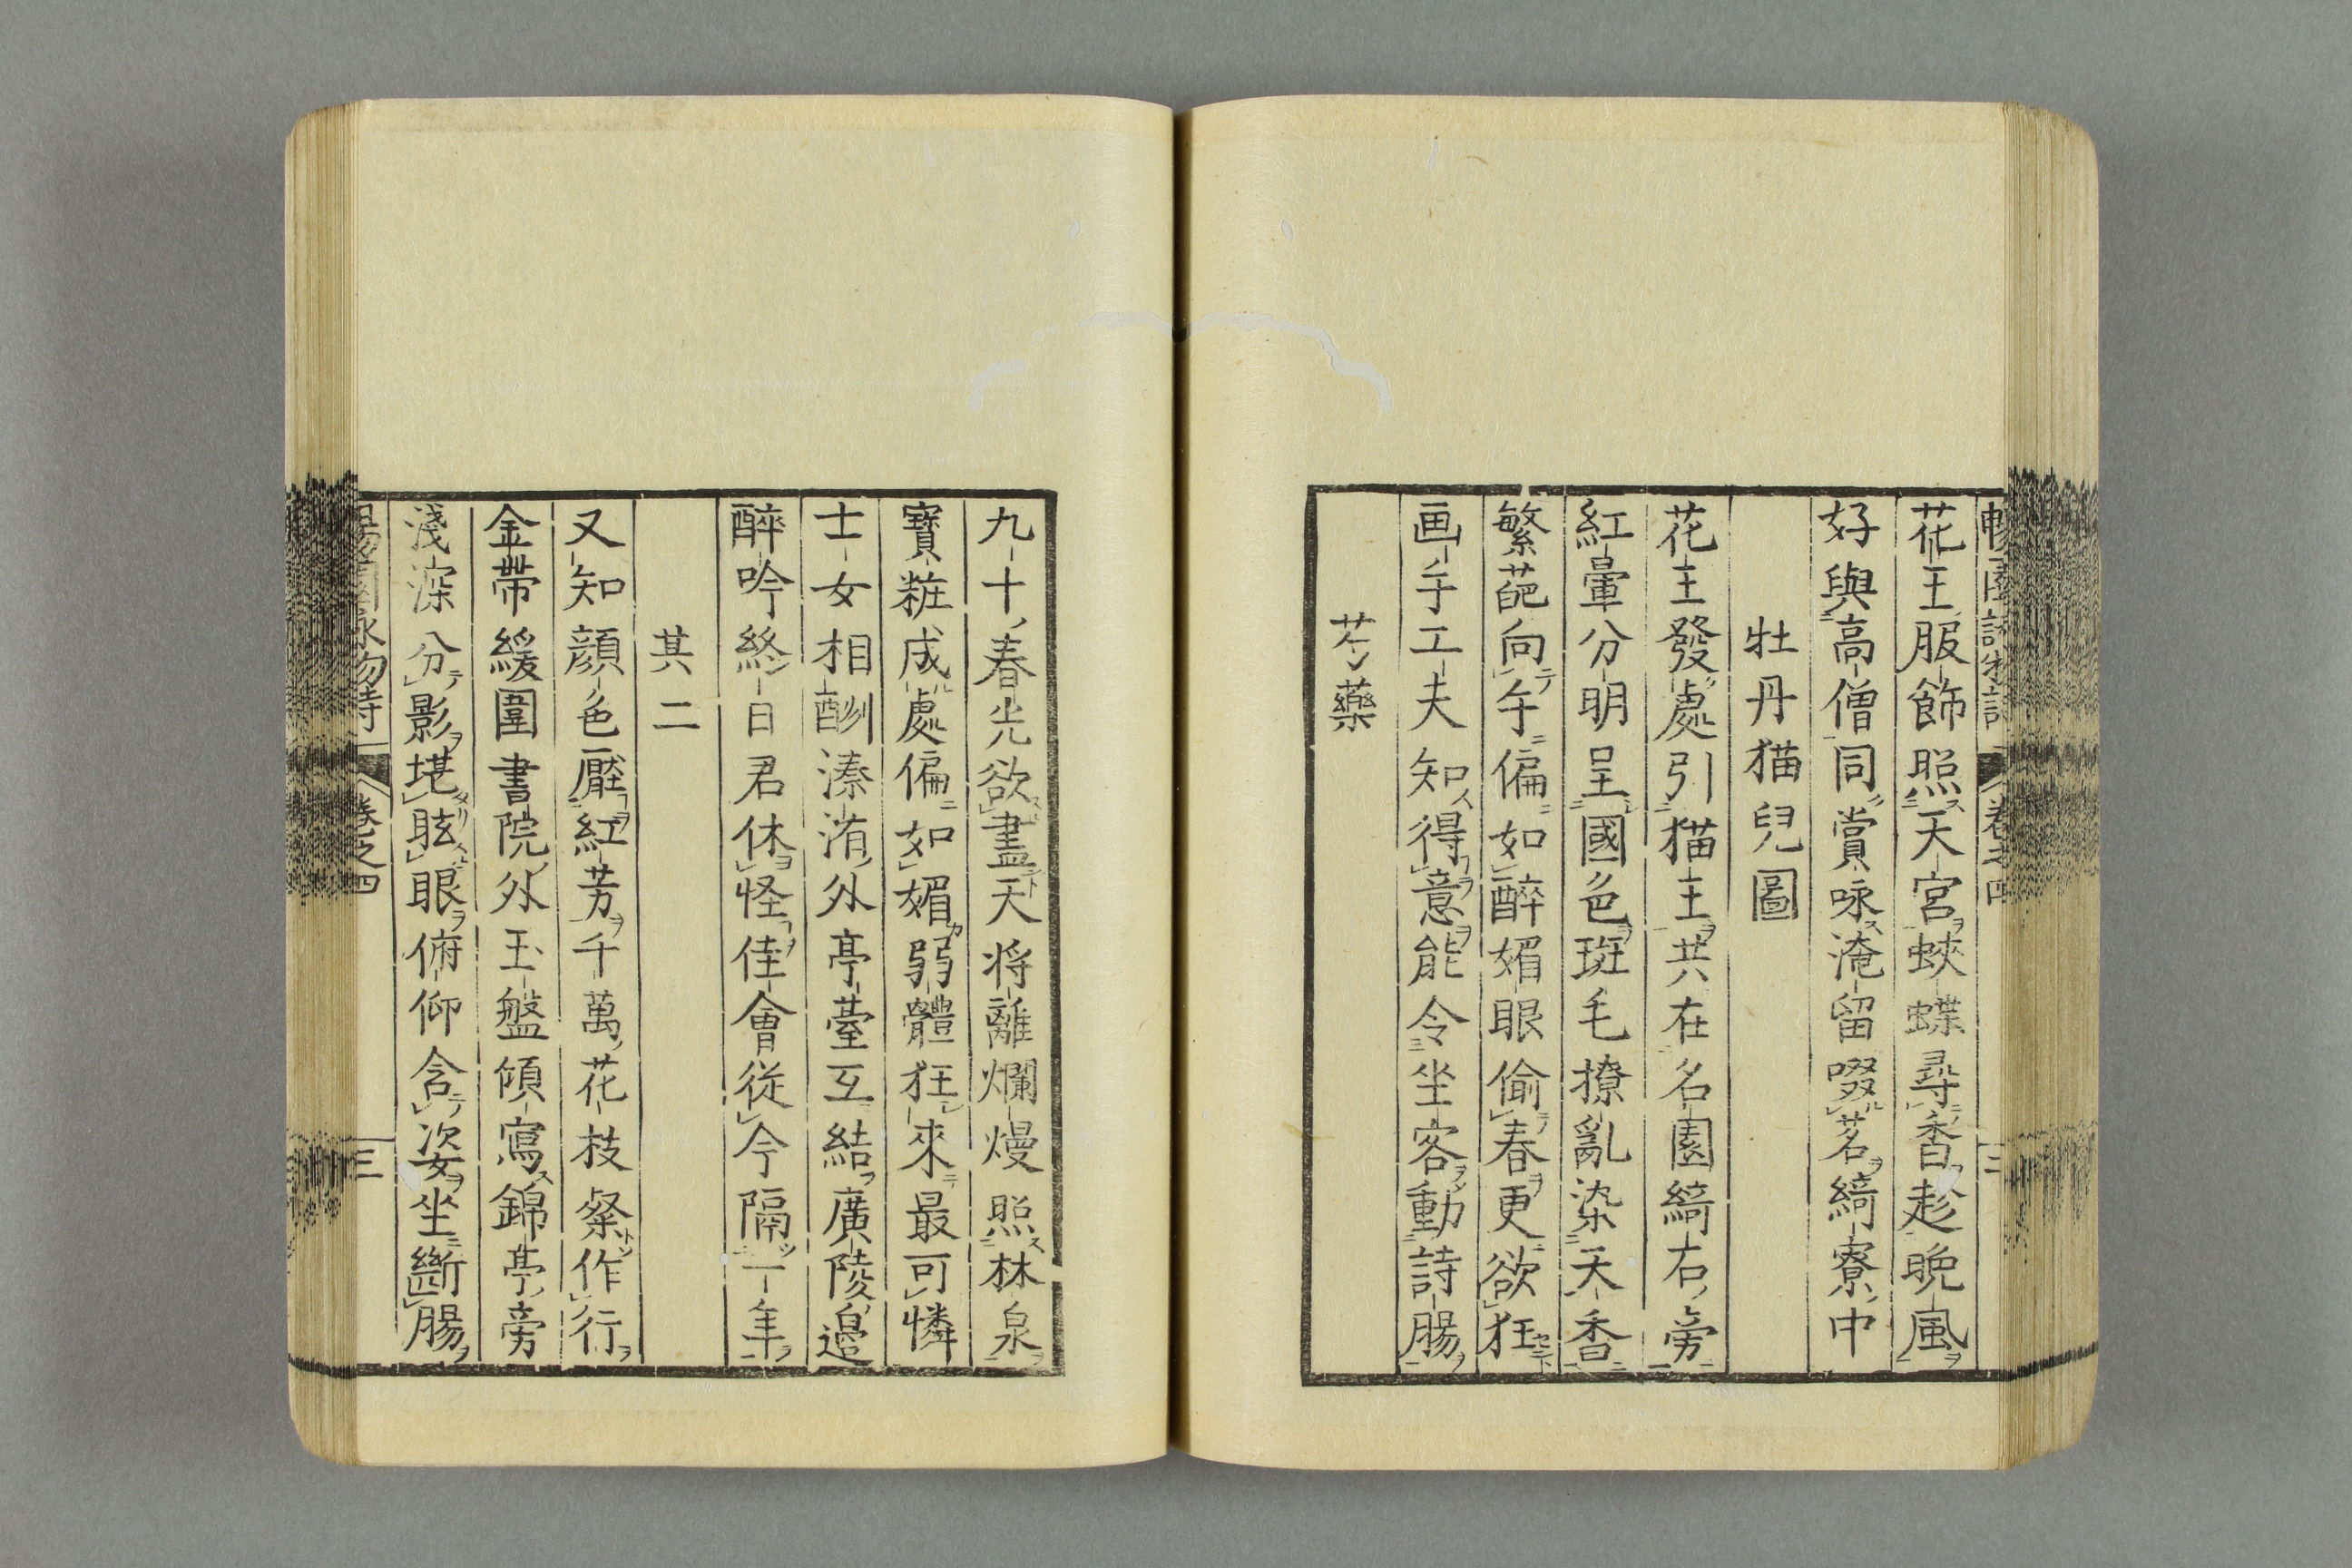 花王服飾照天宮蛺蝶尋香趁晩風
好與高僧同賞咏淹留啜茗綺寮中
牡丹猫兒圖
花王發處引猫王共在名園綺石旁
紅暈分明呈國色斑毛撩亂染天香
繁葩向午偏如醉媚眼偷春更欲狂
画手工夫知得意能令坐客動詩腸
芍藥
九十春光欲盡天将離爛熳照林泉
寶粧成處偏如媚弱體狂來最可憐
士女相酬溱洧外亭臺互結廣陵邉
醉吟終日君休怪佳會從今隔一年
其二
又知顔色壓紅芳千萬花枝粲作行
金帶緩圍書院外玉盤傾寫錦亭旁
淺深分影堪眩眼俯仰含姿坐斷腸
卷之四
三